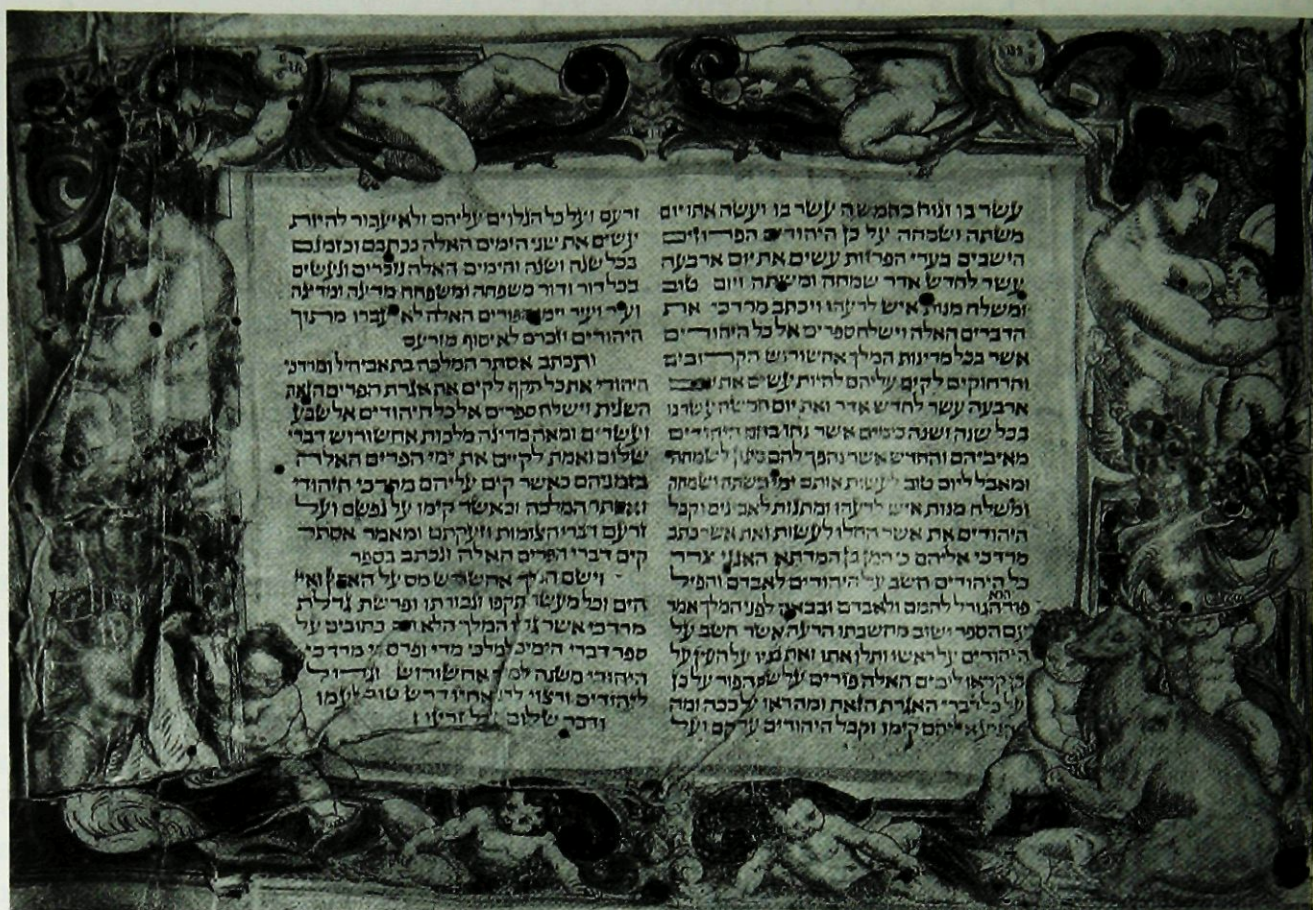 עשר בו ונוח בחמשה עשר בו ועשה אתו יום
משתה ושמחה על כן היהודים הפרוזים
הישבים בערי הפרזות עשים את יום ארבעה
עשר לחדש אדר שמחה ומשתה ויום טוב
ומשלח מנות איש לרעהו ויכתב מרדכי את
הדברים האלה וישלח ספרים אל כל היהודים
אשר בכל מדינות המלך אחשורוש הקרובים
והרחוקים לקים עליהם להיות עשים את יום
ארבעה עשר לחדש אדר ואת יום חמשה עשר בו
בכל שנה ושנה כימים אשר נחו בהם היהודים
מאיביהם והחדש אשר נהפך להם מיגון לשמחה
ומאבל ליום טוב לעשות אותם ימי משתה ושמחה
ומשלח מנות איש לרעהו ומתנות לאבינים וקבל
היהודים את אשר החלו לעשות ואת אשר כתב
מרדכי אליהם כי המן בן המדתא האגגי צרר
כל היהודים חשב על היהודים לאבדם והפיל
פור הוא הגורל להמם ולאבדם ובבאה לפני המלך אמר
עם הספר ישוב מחשבתו הרעה אשר חשב על
היהודים על ראשו ותלו אתו ואת בניו על העץ על
כן קראו לימים האלה פורים על שם הפור על כן
על כל דברי האגרת הזאת ומה ראו על ככה ומה
הגיע אליהם קימו וקבל היהודים עליהם ועל
זרעם ועל כל הנלוים עליהם ולא יעבור להיות
עשים את שני הימים האלה ככתבם וכזמנם
בכל שנה ושנה והימים האלה נזכרים ונעשים
בכל דור ודור משפחה ומשפחה מדינה ומדינה
ועיר ועיר וימי הפורים האלה לא יעברו מתוך
היהודים וזכרם לא יסוף מזרעם
ותכתב אסתר המלכה בת אביחיל ומרדכי
היהודי את כל תקף לקים את אגרת הפרים הזאת
השנית וישלח ספרים אל כל היהודים אל שבע
ועשרים ומאה מדינה מלכות אחשורוש דברי
שלום ואמת לקיים את ימי הפרים האלה
בזמניהם כאשר קים עליהם מרדכי היהודי
ואסתר המלכה וכאשר קימו על נפשם ועל
זרעם דברי הצומות וזעקתם ומאמר אסתר
קים דברי הפרים האלה ונכתב בספר
וישם המלך אחשורוש מס על הארץ ואיי
הים וכל מעשה תקפו וגבורתו ופרשת גדלת
מרדכי אשר גדלו המלך הלא הם כתובים על
ספר דברי הימים למלכי מדי ופרס כי מרדכי
היהודי משנה למלך אחשורוש וגדול
ליהודים ורצוי לרב אחיו דרש טוב לעמו
ודבר שלום לכל זרעו